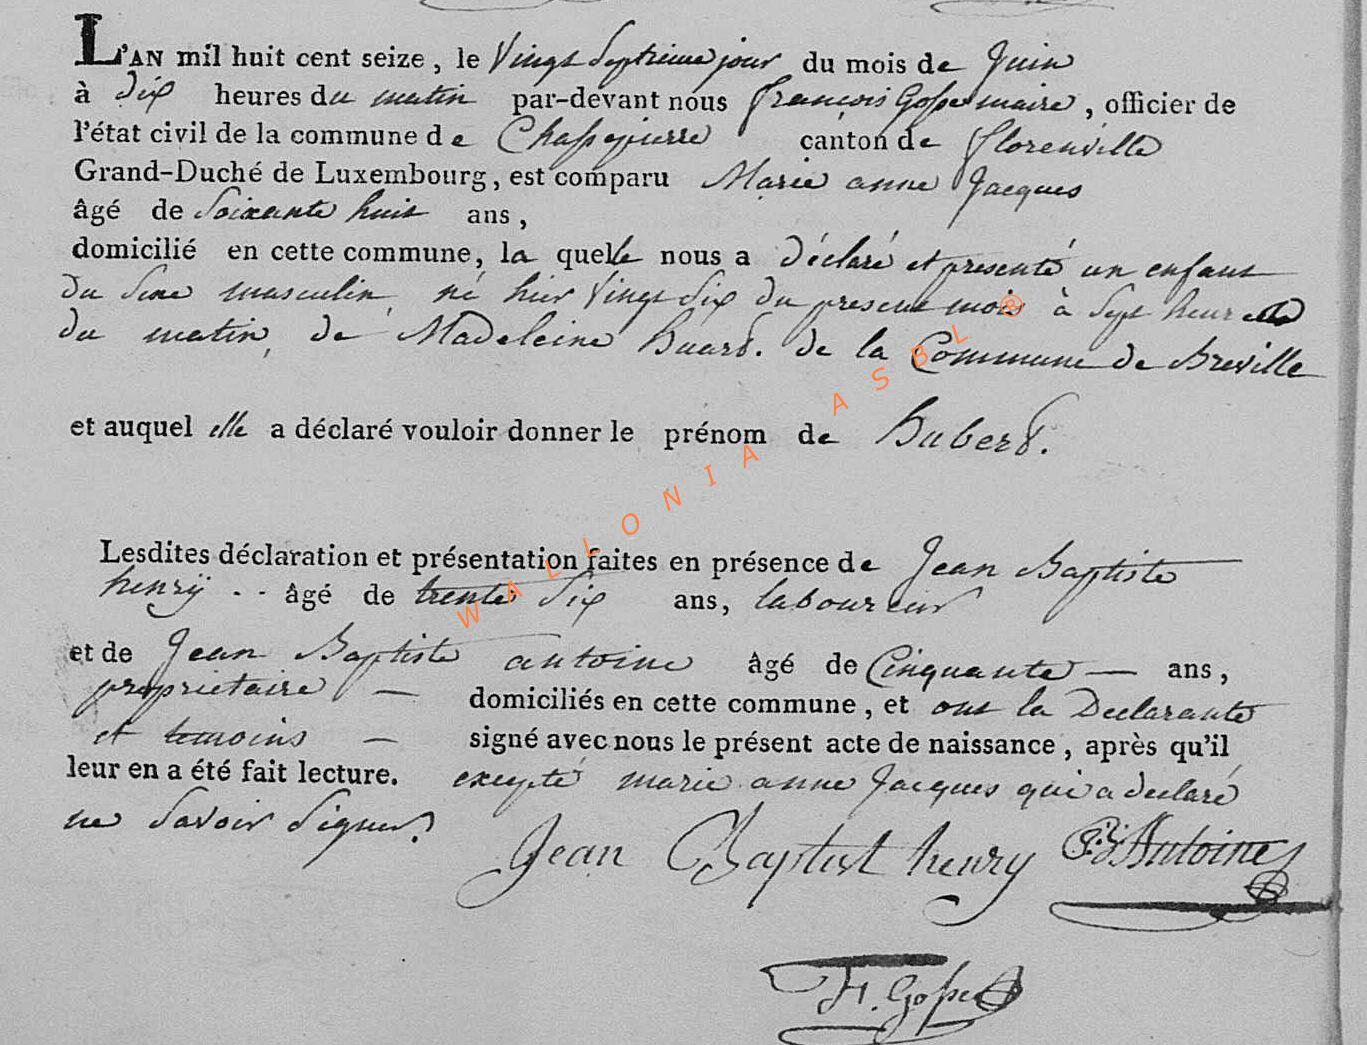 L'AN mil huit cent seize, le Vingt Septieme jour du mois de Juin
à dix heures du matin par-devant nous françois Gosse maire, officier de
l'état civil de la commune de Chassepierre canton de florenville
Grand-Duché de Luxembourg, est comparu Marie anne Jacques
âgé de Soixante huit ans,
domicilié en cette commune, la quelle nous a déclaré et presenté un enfant
du Sexe masculin né hier Vingt Six du present mois à Sept heures
du matin, de Madeleine huard. de la Commune de Breville
et auquel elle a déclaré vouloir donner le prénom de huberd.
Lesdites déclaration et présentation faites en présence de Jean Baptiste
henrÿ .. âgé de trente Six ans, laboureur
et de Jean Baptiste antoine âgé de Cinquante — ans,
proprietaire — domiciliés en cette commune, et ont la Declarante
et temoins — signé avec nous le présent acte de naissance, après qu'il
leur en a été fait lecture. excepté marie anne Jacques qui a declaré
ne Savoir Signer.
Jean Baptist henry J:B: Antoine
F. Gosse
WALLONIA ASBL ®